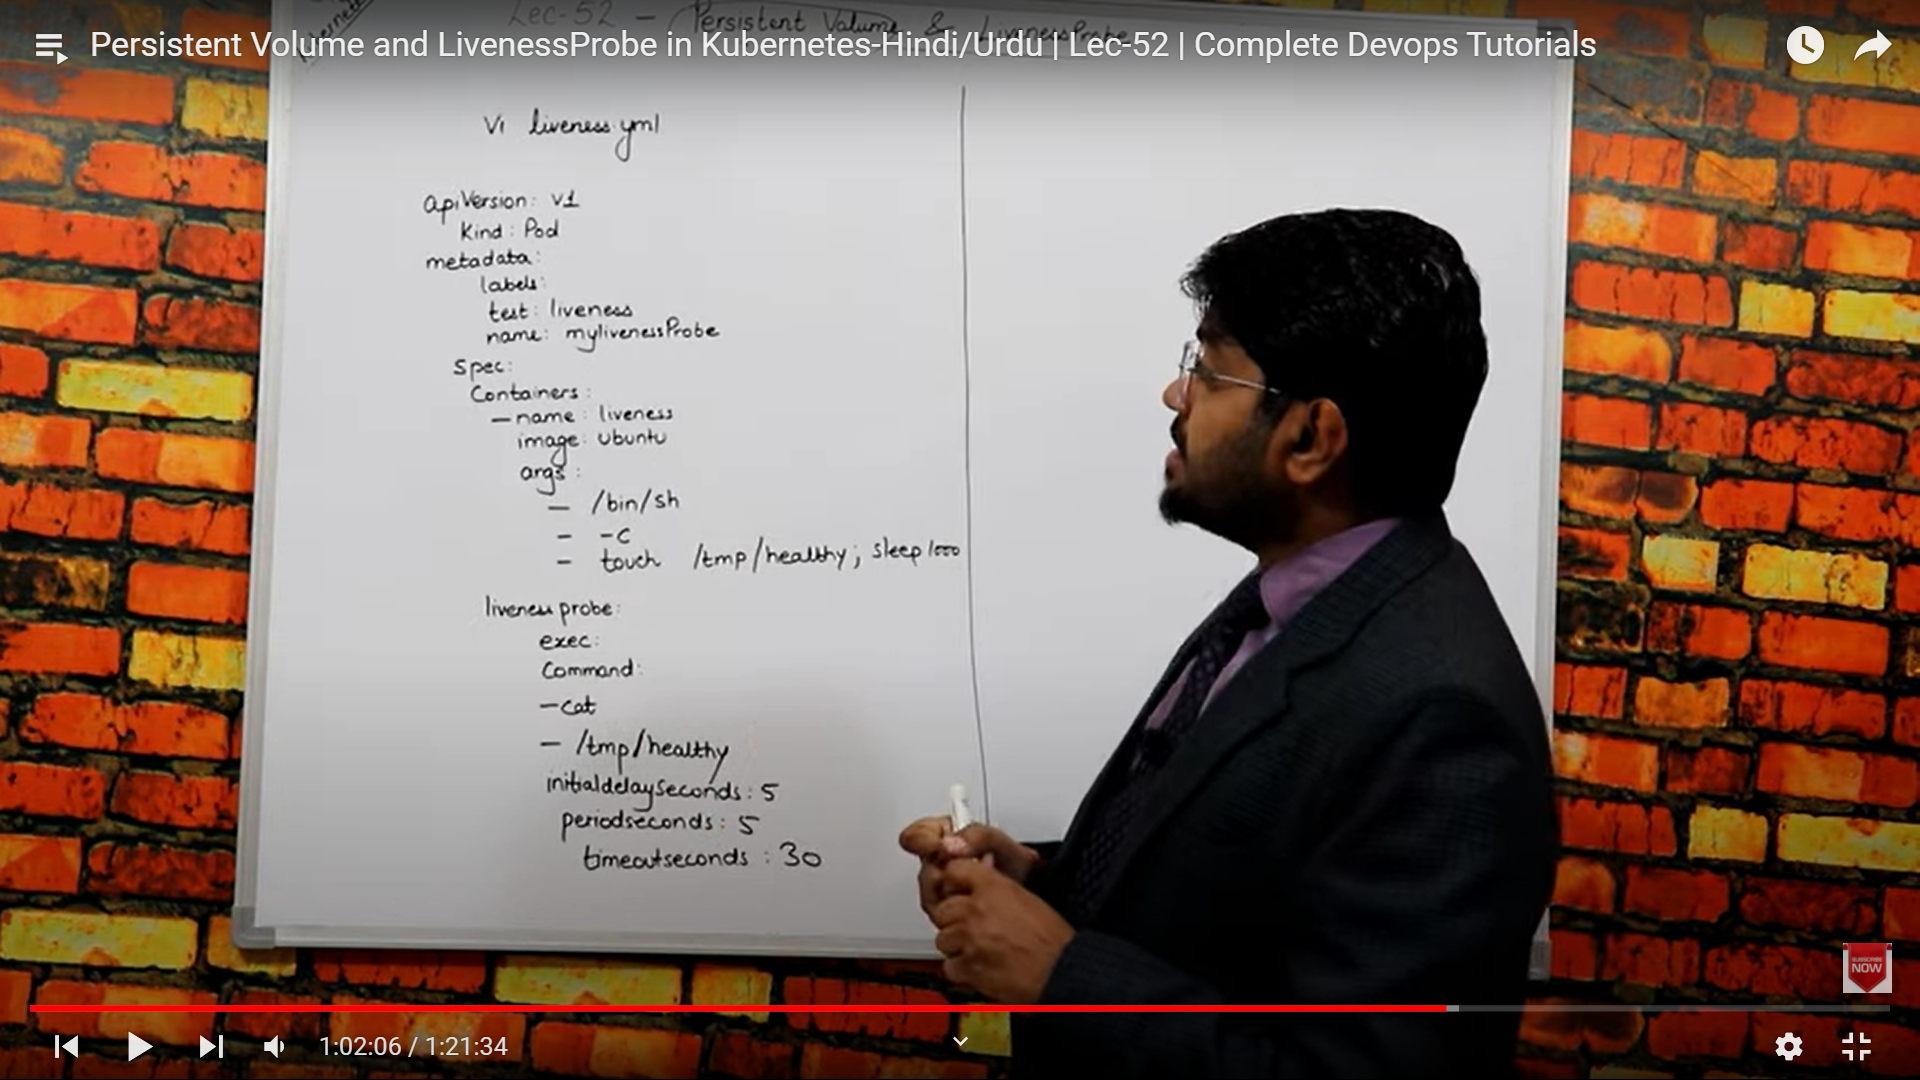 Persistent Volume and LivenessProbe in Kubernetes-Hindi/Urdu | Lec-52 | Complete Devops Tutorials
Lec-52 - Persistent Volume & LivenessProbe
Vi liveness.yml
apiVersion: v1
Kind: Pod
metadata:
labels:
test: liveness
name: mylivenessProbe
Spec:
Containers:
- name: liveness
image: ubuntu
args:
- /bin/sh
- -c
- touch /tmp/healthy; sleep 1000
liveness probe:
exec:
Command:
- cat
- /tmp/healthy
initialdelaySeconds: 5
periodseconds: 5
timeoutseconds: 30
SUBSCRIBE
NOW
1:02:06 / 1:21:34